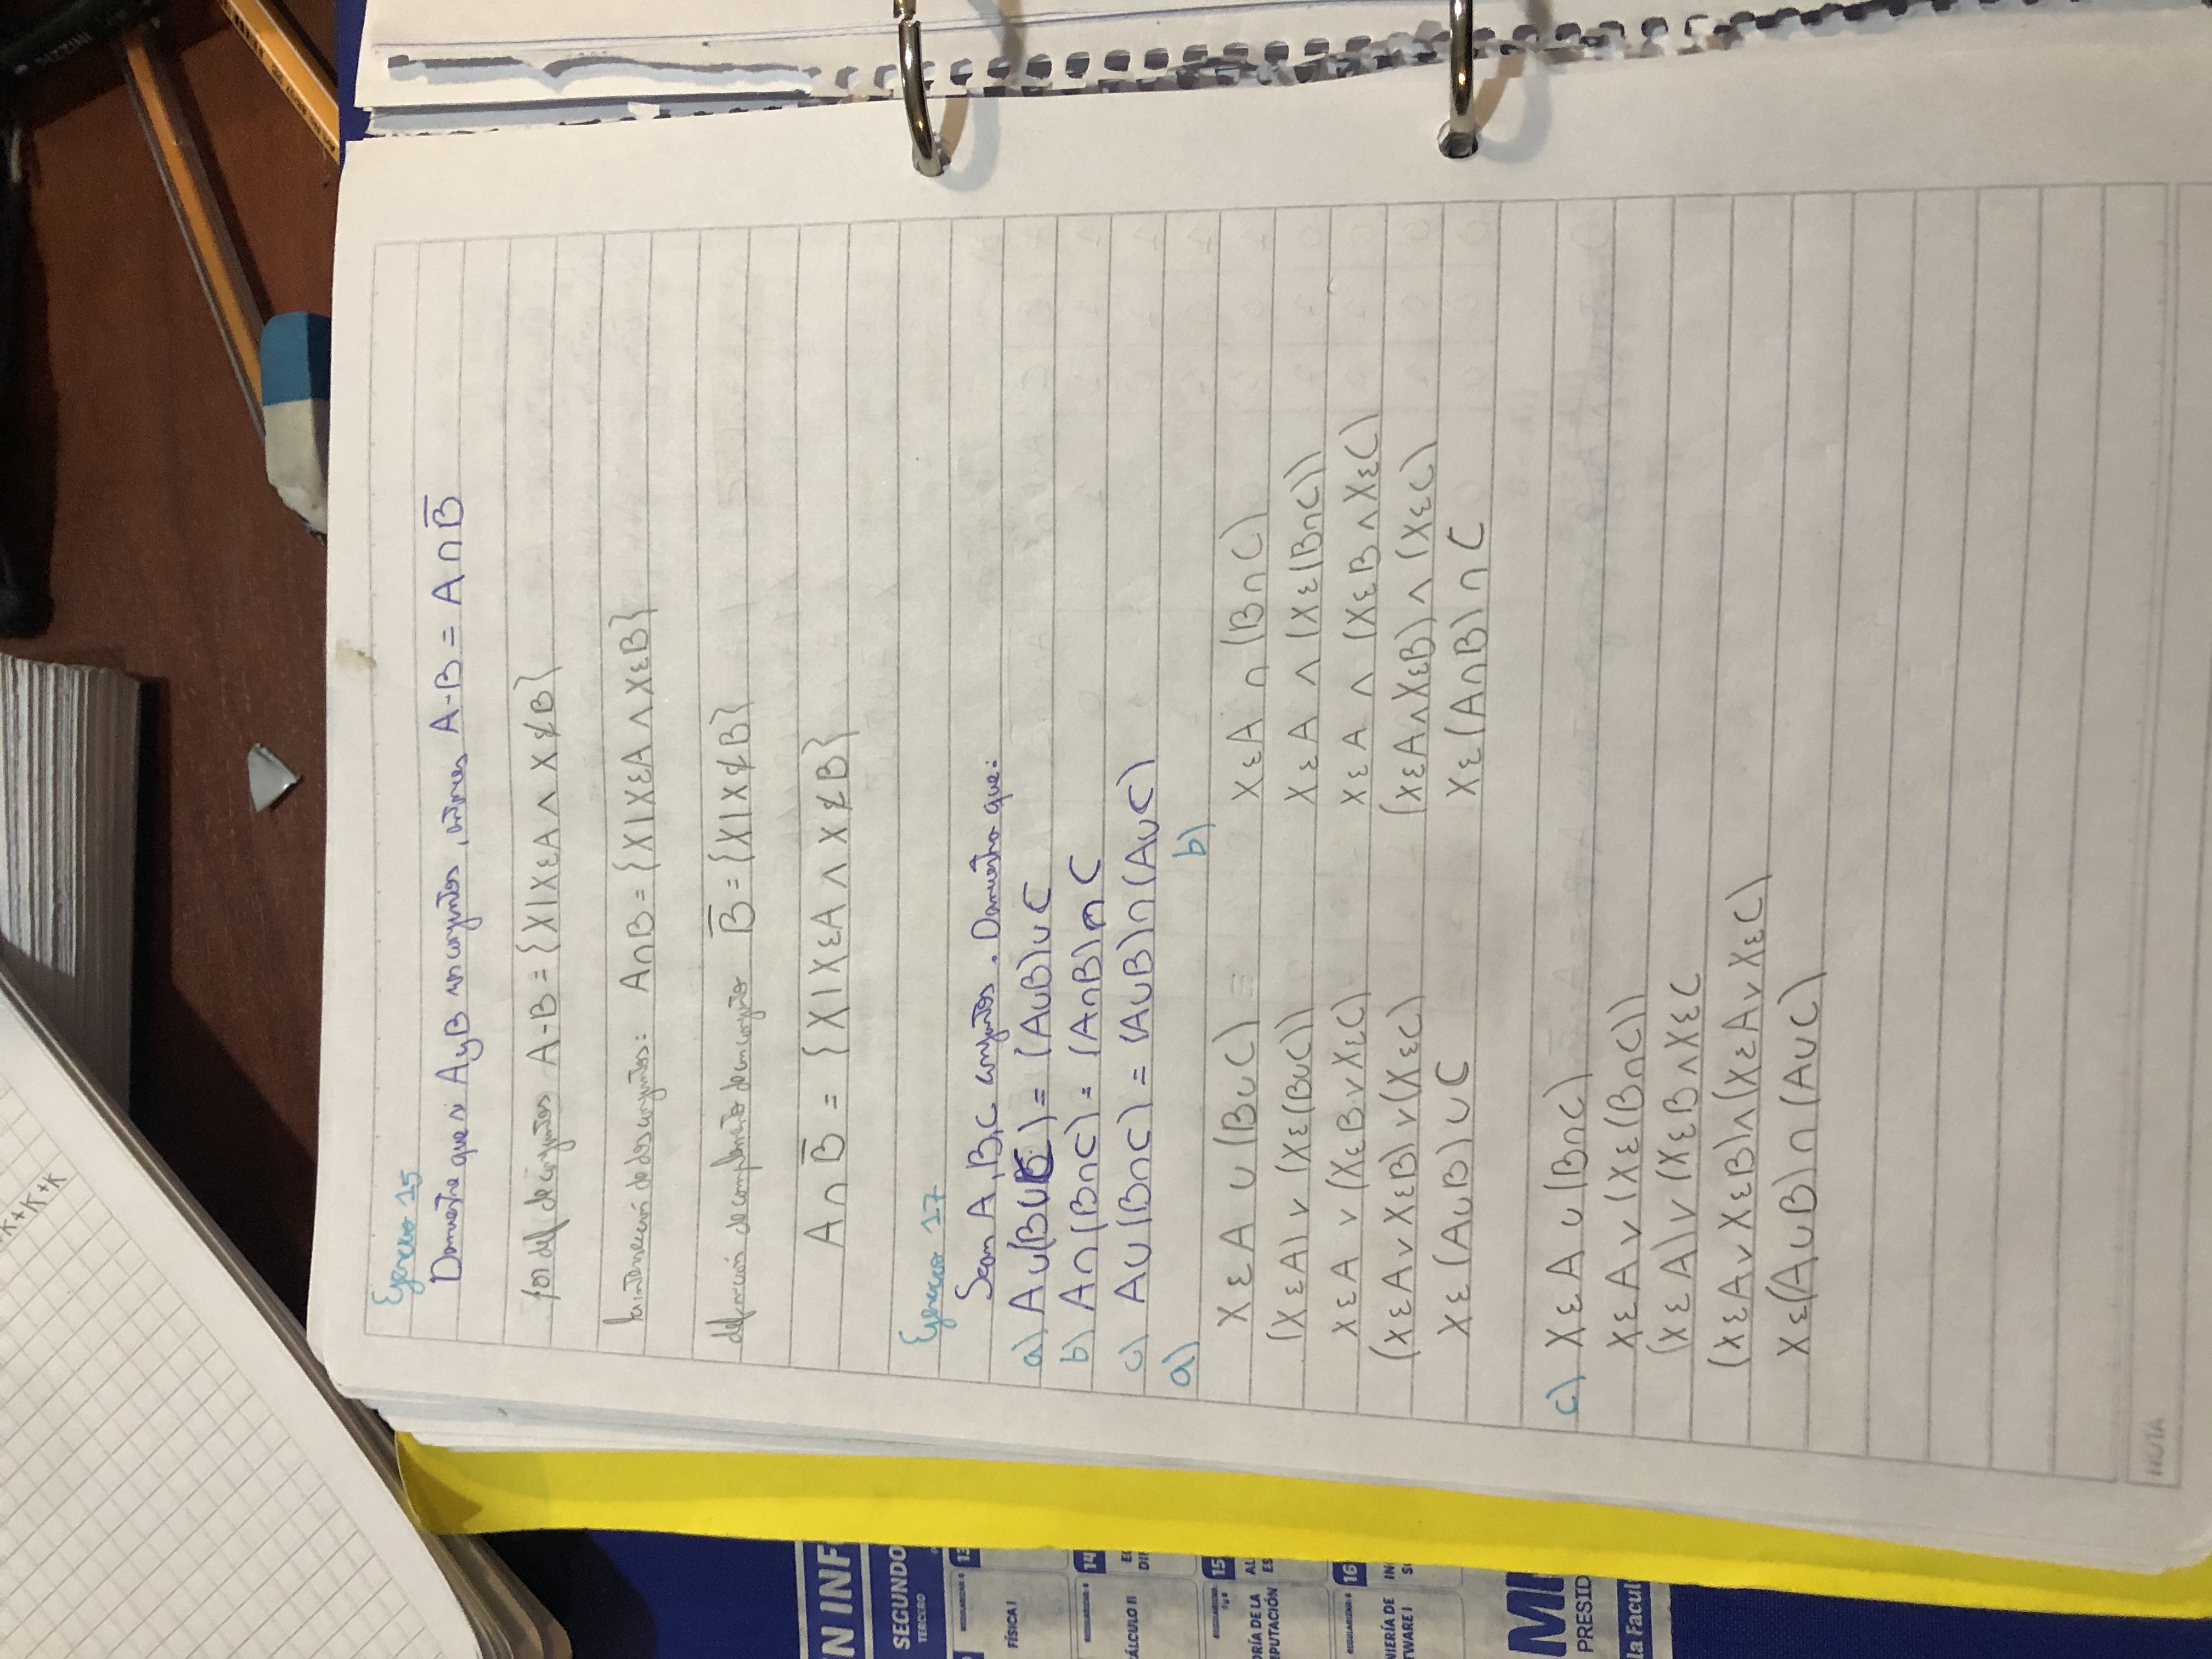 K+K+K
Ejercicio 15
Demuestre que si A y B son conjuntos, entonces A-B = A∩B̅
Por def de conjuntos A-B = {X|XεA ∧ X∉B}
la intersección de dos conjuntos: A∩B = {X|XεA ∧ XεB}
definición de complemento de un conjunto B̅ = {X|X∉B}
A∩B̅ = {X|XεA ∧ X∉B}
Ejercicio 17
Sean A, B, C conjuntos. Demuestra que:
a) A∪(B∪C) = (A∪B)∪C
b) A∩(B∩C) = (A∩B)∩C
c) A∪(B∩C) = (A∪B)∩(A∪C)
a)
XεA ∪ (B∪C) =
(XεA) ∨ (Xε(B∪C))
XεA ∨ (XεB ∨ XεC)
(XεA ∨ XεB) ∨ (XεC)
Xε(A∪B)∪C
b)
XεA ∩ (B∩C)
XεA ∧ (Xε(B∩C))
XεA ∧ (XεB ∧ XεC)
(XεA ∧ XεB) ∧ (XεC)
Xε(A∩B)∩C
c) XεA ∪ (B∩C)
XεA ∨ (Xε(B∩C))
(XεA) ∨ (XεB ∧ XεC
(XεA ∨ XεB) ∧ (XεA ∨ XεC)
Xε(A∪B)∩(A∪C)
NOTA
N INF
SEGUNDO
TERCERO
13
FÍSICA I
14
ÁLCULO II
15
ORÍA DE LA
MPUTACIÓN
16
NIERÍA DE
TWARE I
MI
PRESID
la Facul